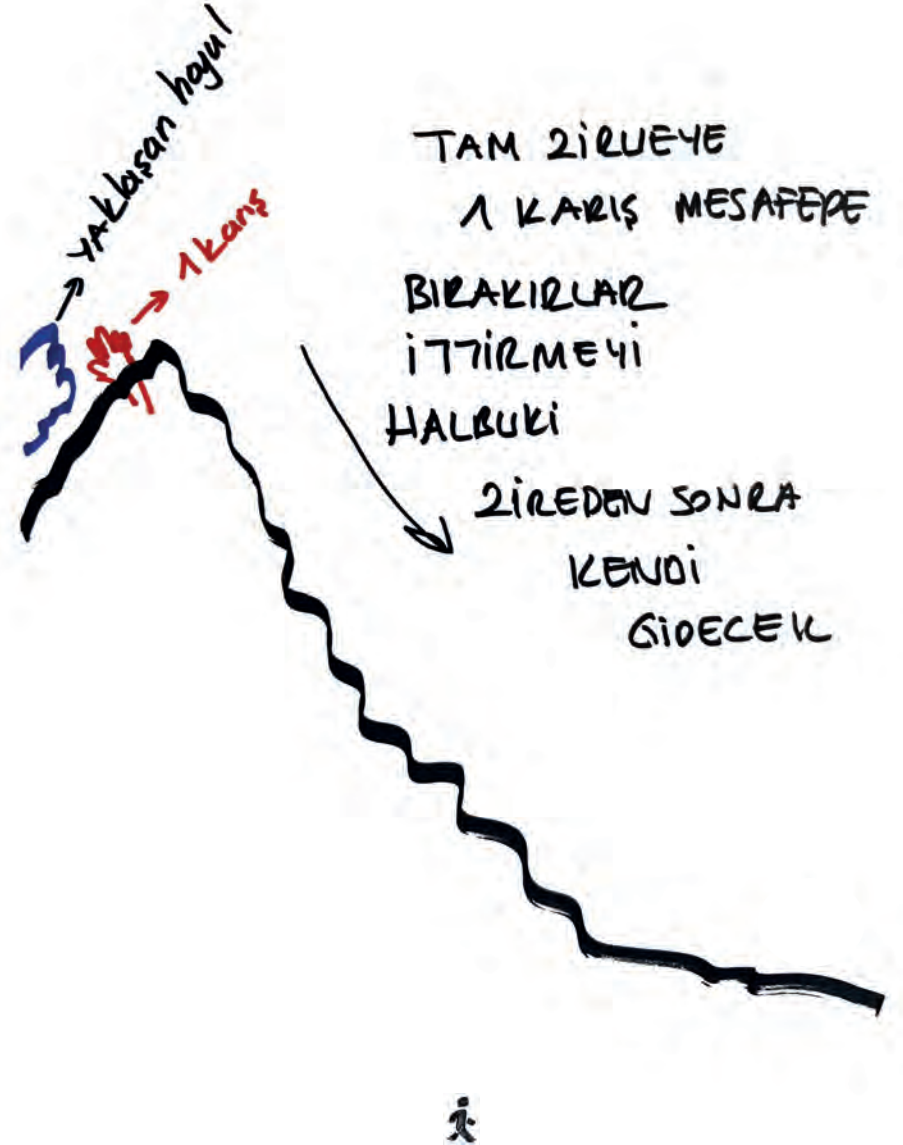 yaklaşan hayal
1 karış
TAM ZİRVEYE
1 KARIŞ MESAFEDE
BIRAKIRLAR
İTTİRMEYİ
HALBUKİ
ZİREDEN SONRA
KENDİ
GİDECEK